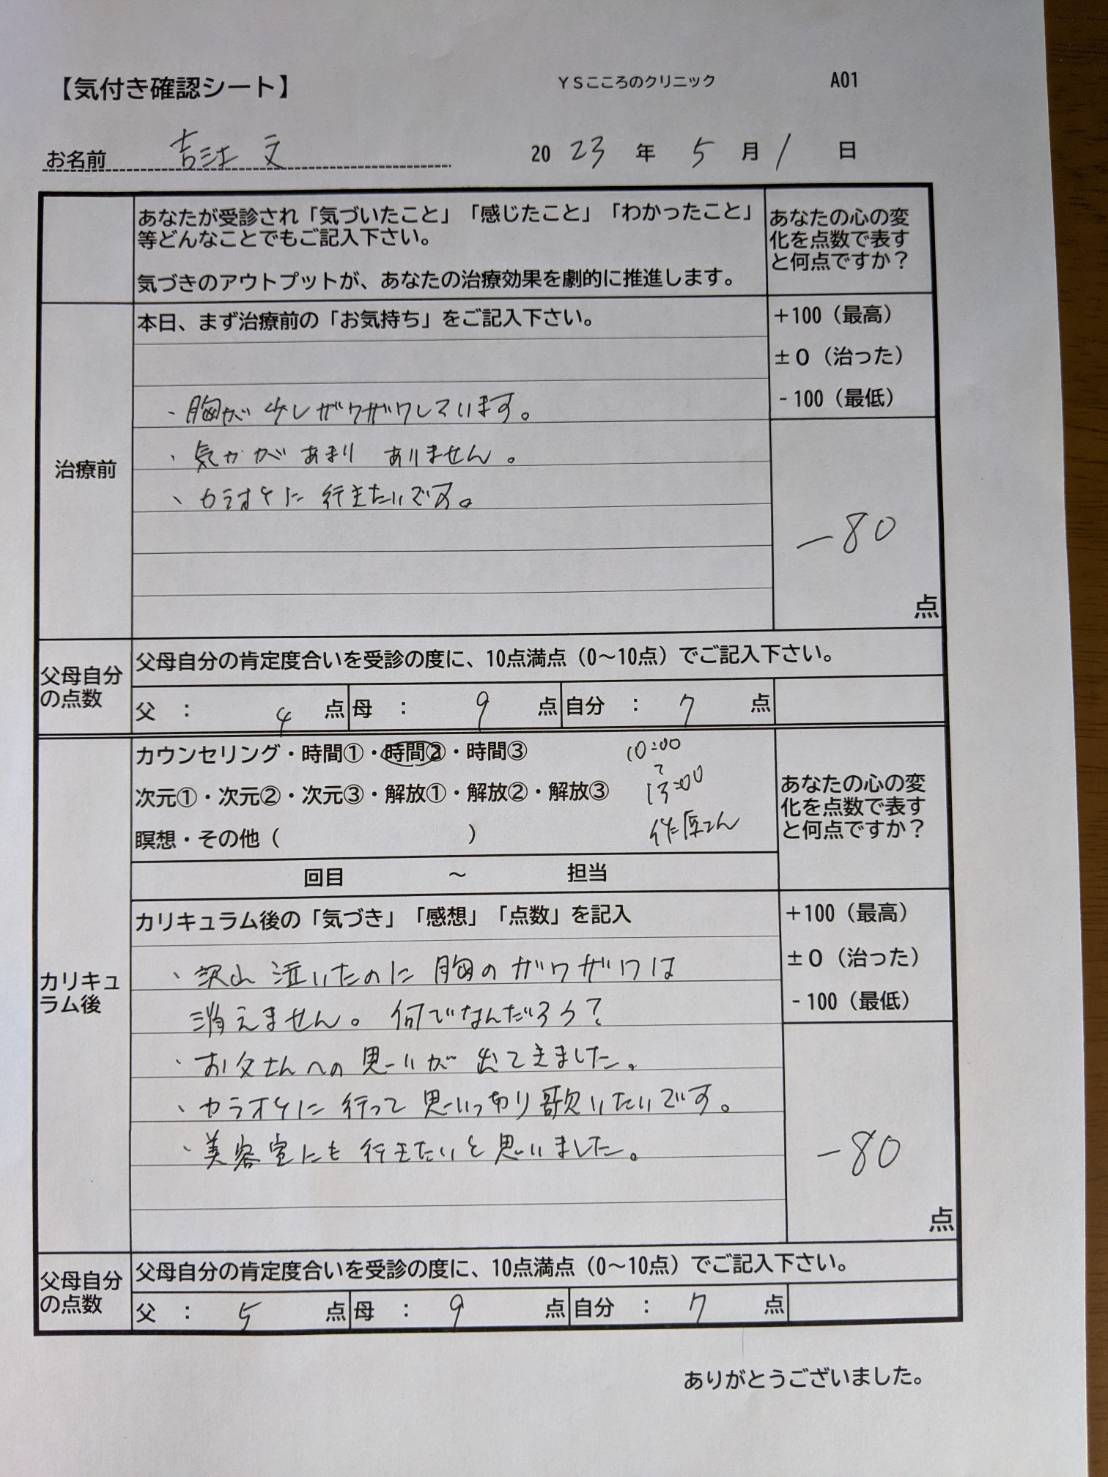 【気付き確認シート】 YSこころのクリニック A01
お名前 吉江 文 2023年5月1日
あなたが受診され「気づいたこと」「感じたこと」「わかったこと」
等どんなことでもご記入下さい。
気づきのアウトプットが、あなたの治療効果を劇的に推進します。
あなたの心の変
化を点数で表す
と何点ですか？
治療前
本日、まず治療前の「お気持ち」をご記入下さい。
・胸が少しザワザワしています。
・気力があまりありません。
・カラオケに行きたいです。
+100（最高）
±0（治った）
-100（最低）
-80
点
父母自分
の点数
父母自分の肯定度合いを受診の度に、10点満点（0～10点）でご記入下さい。
父 ： 4 点 母 ： 9 点 自分 ： 7 点
カリキュ
ラム後
カウンセリング・時間①・時間②・時間③
次元①・次元②・次元③・解放①・解放②・解放③
瞑想・その他（ ）
10:00
～
13:00
さん
回目 ～ 担当
あなたの心の変
化を点数で表す
と何点ですか？
カリキュラム後の「気づき」「感想」「点数」を記入
・沢山泣いたのに胸のザワザワは
消えません。何でなんだろう？
・お父さんへの思いが出てきました。
・カラオケに行って思いっ切り歌いたいです。
・美容室にも行きたいと思いました。
+100（最高）
±0（治った）
-100（最低）
-80
点
父母自分
の点数
父母自分の肯定度合いを受診の度に、10点満点（0～10点）でご記入下さい。
父 ： 5 点 母 ： 9 点 自分 ： 7 点
ありがとうございました。